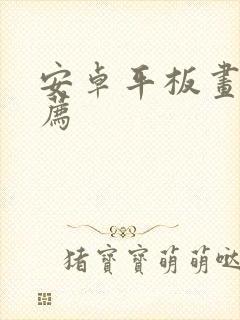 安卓平板畫
薦
猪寶寶萌萌噠